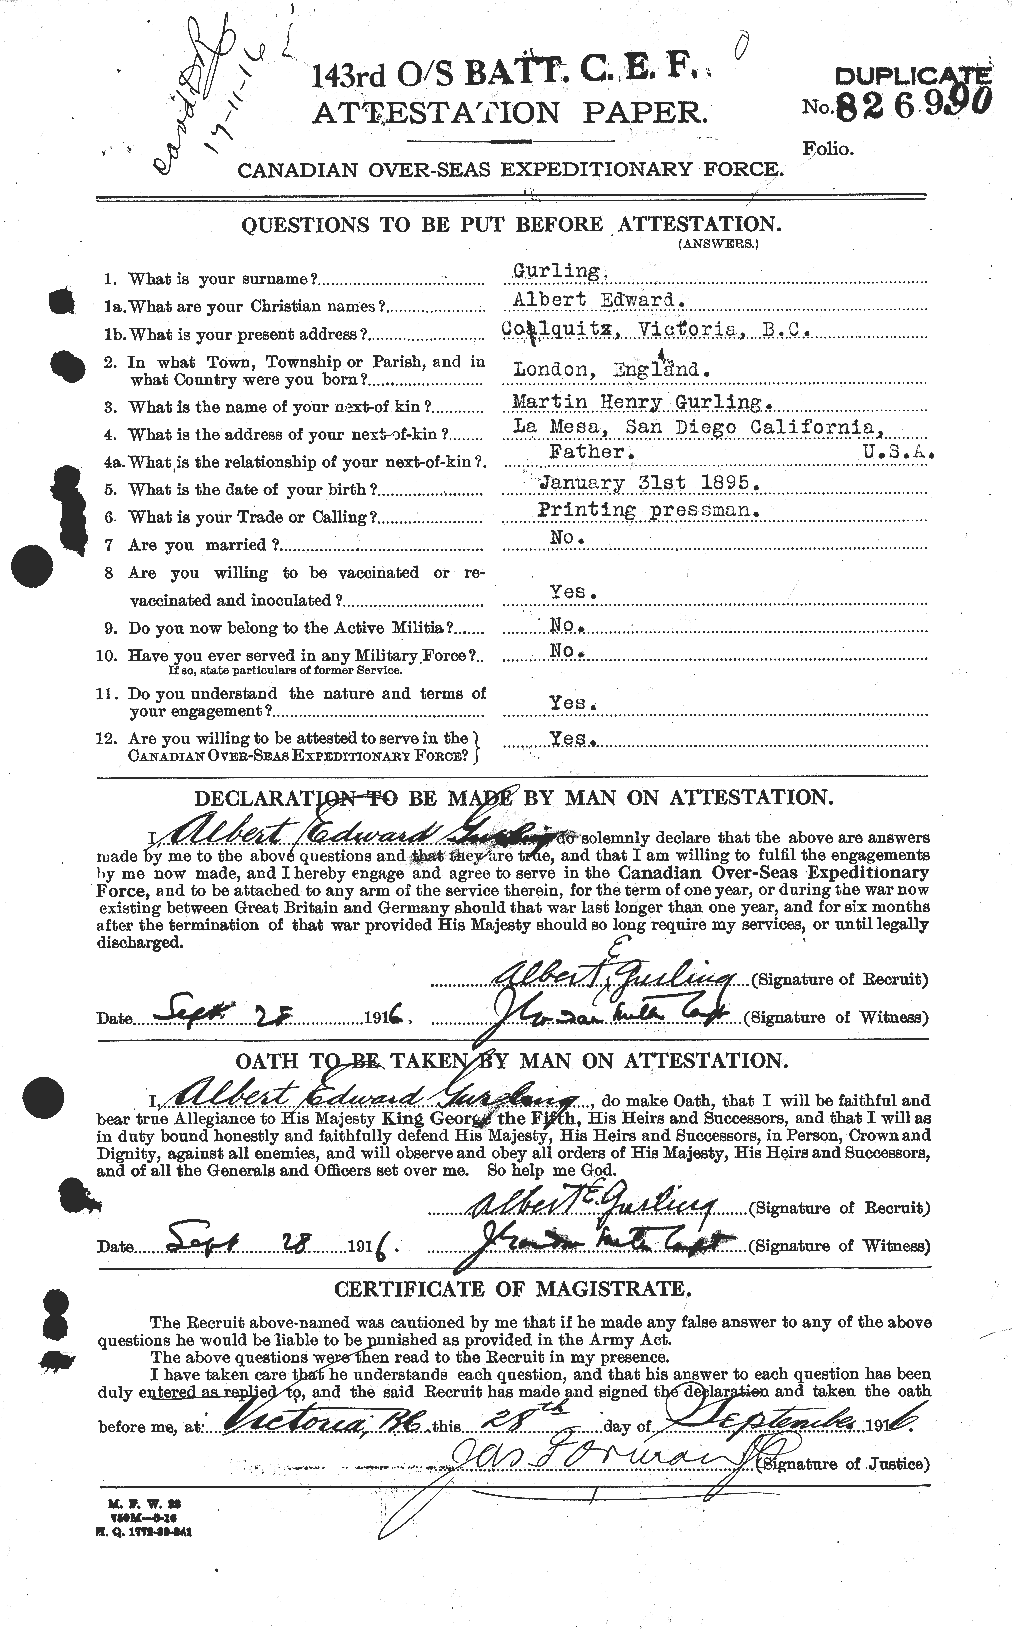 card
17-11-16
143rd O/S BATT. C. E. F.
ATTESTATION PAPER.
DUPLICATE
No. 826990
Folio.
CANADIAN OVER-SEAS EXPEDITIONARY FORCE.
QUESTIONS TO BE PUT BEFORE ATTESTATION.
(ANSWERS.)
1. What is your surname? Gurling.
1a. What are your Christian names? Albert Edward.
1b. What is your present address? Colquitz, Victoria, B.C.
2. In what Town, Township or Parish, and in
what Country were you born? London, England.
3. What is the name of your next-of kin? Martin Henry Gurling.
4. What is the address of your next-of-kin? La Mesa, San Diego California,
U.S.A.
4a. What is the relationship of your next-of-kin? Father.
5. What is the date of your birth? January 31st 1895.
6. What is your Trade or Calling? Printing pressman.
7 Are you married? No.
8 Are you willing to be vaccinated or re-
vaccinated and inoculated? Yes.
9. Do you now belong to the Active Militia? No.
10. Have you ever served in any Military Force? No.
If so, state particulars of former Service.
11. Do you understand the nature and terms of
your engagement? Yes.
12. Are you willing to be attested to serve in the
CANADIAN OVER-SEAS EXPEDITIONARY FORCE? Yes.
DECLARATION TO BE MADE BY MAN ON ATTESTATION.
I, Albert Edward Gurling do solemnly declare that the above are answers
made by me to the above questions and that they are true, and that I am willing to fulfil the engagements
by me now made, and I hereby engage and agree to serve in the Canadian Over-Seas Expeditionary
Force, and to be attached to any arm of the service therein, for the term of one year, or during the war now
existing between Great Britain and Germany should that war last longer than one year, and for six months
after the termination of that war provided His Majesty should so long require my services, or until legally
discharged.
Albert E. Gurling (Signature of Recruit)
Date Sept 28 1916. (Signature of Witness)
OATH TO BE TAKEN BY MAN ON ATTESTATION.
I, Albert Edward Gurling, do make Oath, that I will be faithful and
bear true Allegiance to His Majesty King George the Fifth, His Heirs and Successors, and that I will as
in duty bound honestly and faithfully defend His Majesty, His Heirs and Successors, in Person, Crown and
Dignity, against all enemies, and will observe and obey all orders of His Majesty, His Heirs and Successors,
and of all the Generals and Officers set over me. So help me God.
Albert E. Gurling (Signature of Recruit)
Date Sept 28 1916. Capt (Signature of Witness)
CERTIFICATE OF MAGISTRATE.
The Recruit above-named was cautioned by me that if he made any false answer to any of the above
questions he would be liable to be punished as provided in the Army Act.
The above questions were then read to the Recruit in my presence.
I have taken care that he understands each question, and that his answer to each question has been
duly entered as replied to, and the said Recruit has made and signed the declaration and taken the oath
before me, at Victoria, BC this 28th day of September 1916.
Jas Forman JP (Signature of Justice)
M. F. W. 23
750M—6-16
H. Q. 1772-39-241